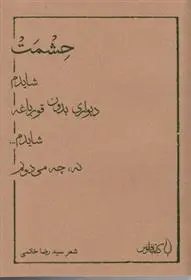 حِشْمَتْ
شایدم
دیواری بدون قورباغه
شایدم...
نه، چه می‌دونم
شعر سید رضا خاتمی